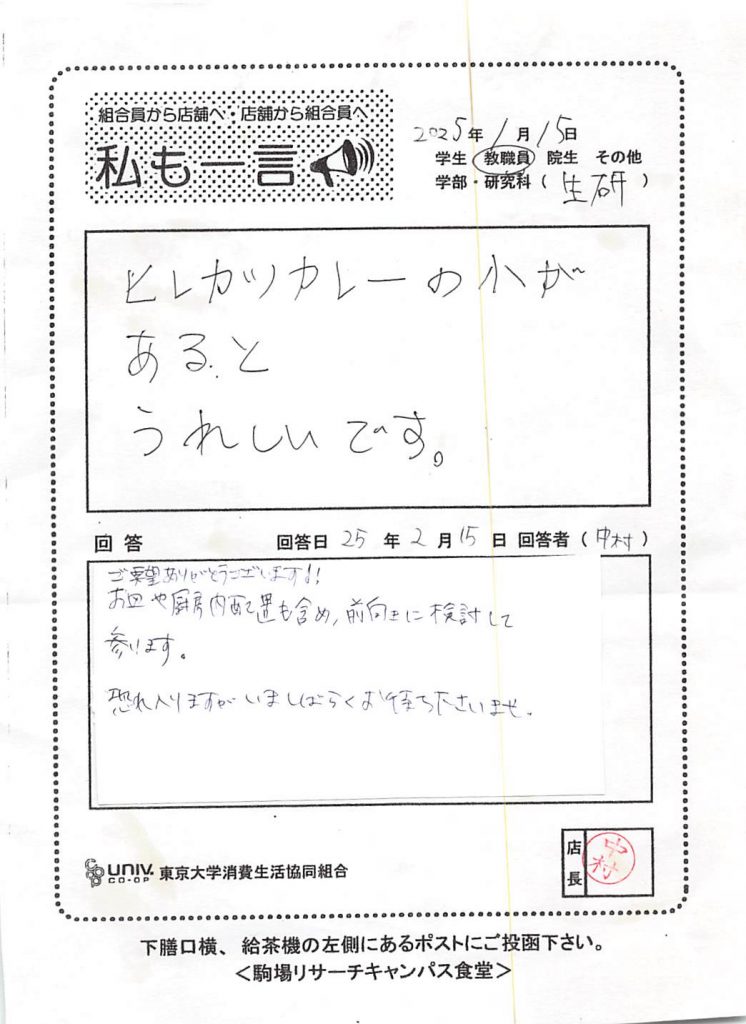 組合員から店舗へ・店舗から組合員へ
私も一言
2025年1月15日
学生 教職員 院生 その他
学部・研究科（生研）
ヒレカツカレーの小が
あると
うれしいです。
回答 回答日 25年2月15日 回答者（中村）
ご要望ありがとうございます!!
お皿や厨房内配置も含め、前向きに検討して
参ります。
恐れ入りますがいましばらくお待ち下さいませ。
UNIV. CO-OP 東京大学消費生活協同組合
店長 中村
下膳口横、給茶機の左側にあるポストにご投函下さい。
＜駒場リサーチキャンパス食堂＞